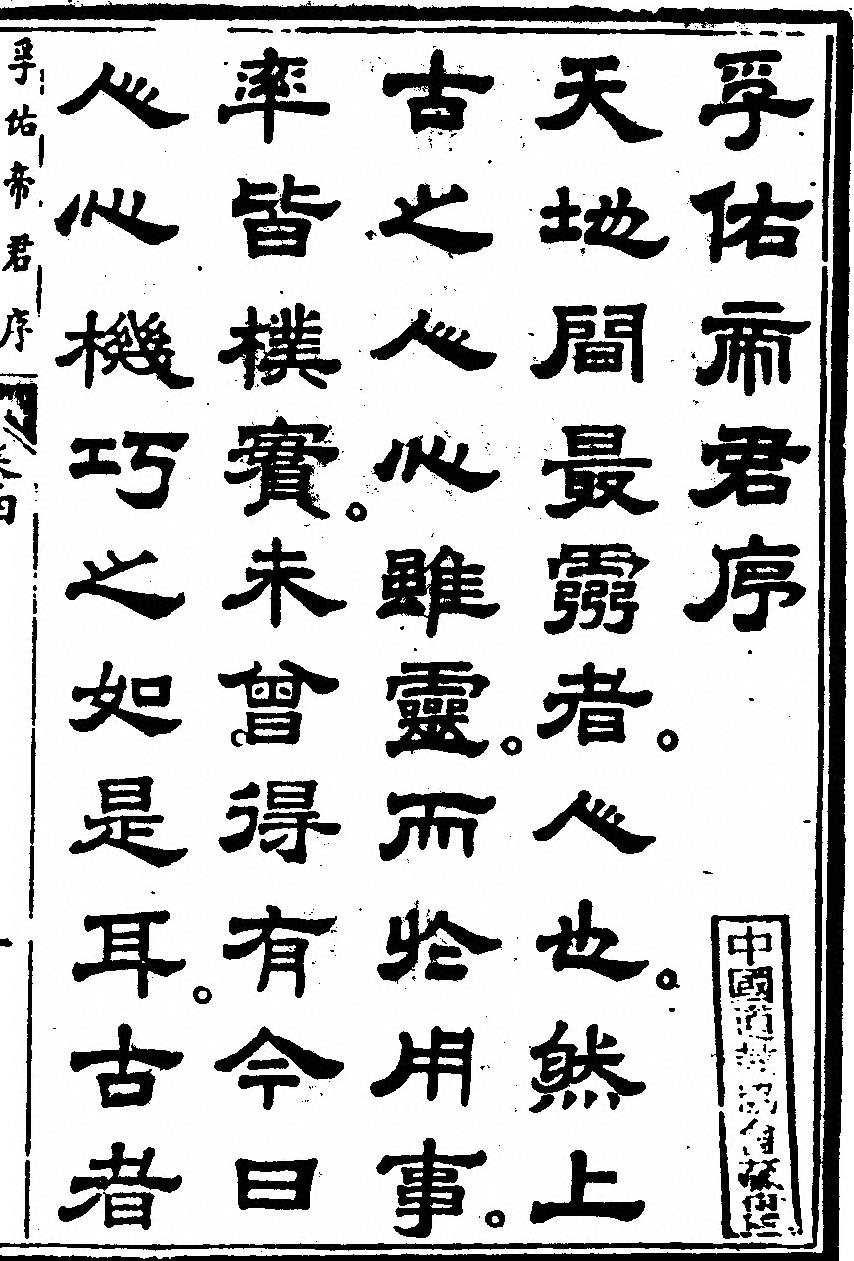 孚佑帝君序
天地間最靈者人也然上
古之人心雖靈而於用事
率皆樸實未曾得有今日
人心機巧之如是耳古者
孚佑帝君序
中國道